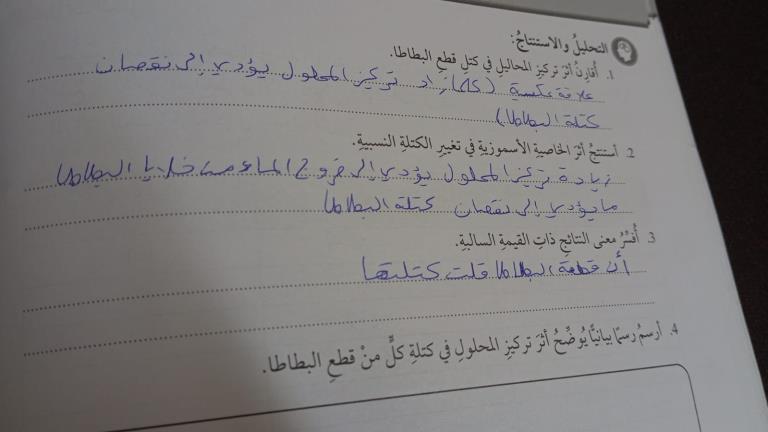 التحليلُ والاستنتاجُ:
1. أُقارِنُ أثرَ تركيزِ المحاليلِ في كتلِ قطعِ البطاطا.
علاقة عكسية (كلما زاد تركيز المحلول يؤدي إلى نقصان
كتلة البطاطا)
2. أستنتجُ أثرَ الخاصيةِ الأسموزيةِ في تغييرِ الكتلةِ النسبيةِ.
زيادة تركيز المحلول يؤدي إلى خروج الماء من خلايا البطاطا
مايؤدي إلى نقصان كتلة البطاطا
3. أُفسِّرُ معنى النتائجِ ذاتِ القيمةِ السالبةِ.
أن قطعة البطاطا قلت كتلتها
4. أرسمُ رسمًا بيانيًّا يُوضِّحُ أثرَ تركيزِ المحلولِ في كتلةِ كلٍّ منْ قطعِ البطاطا.